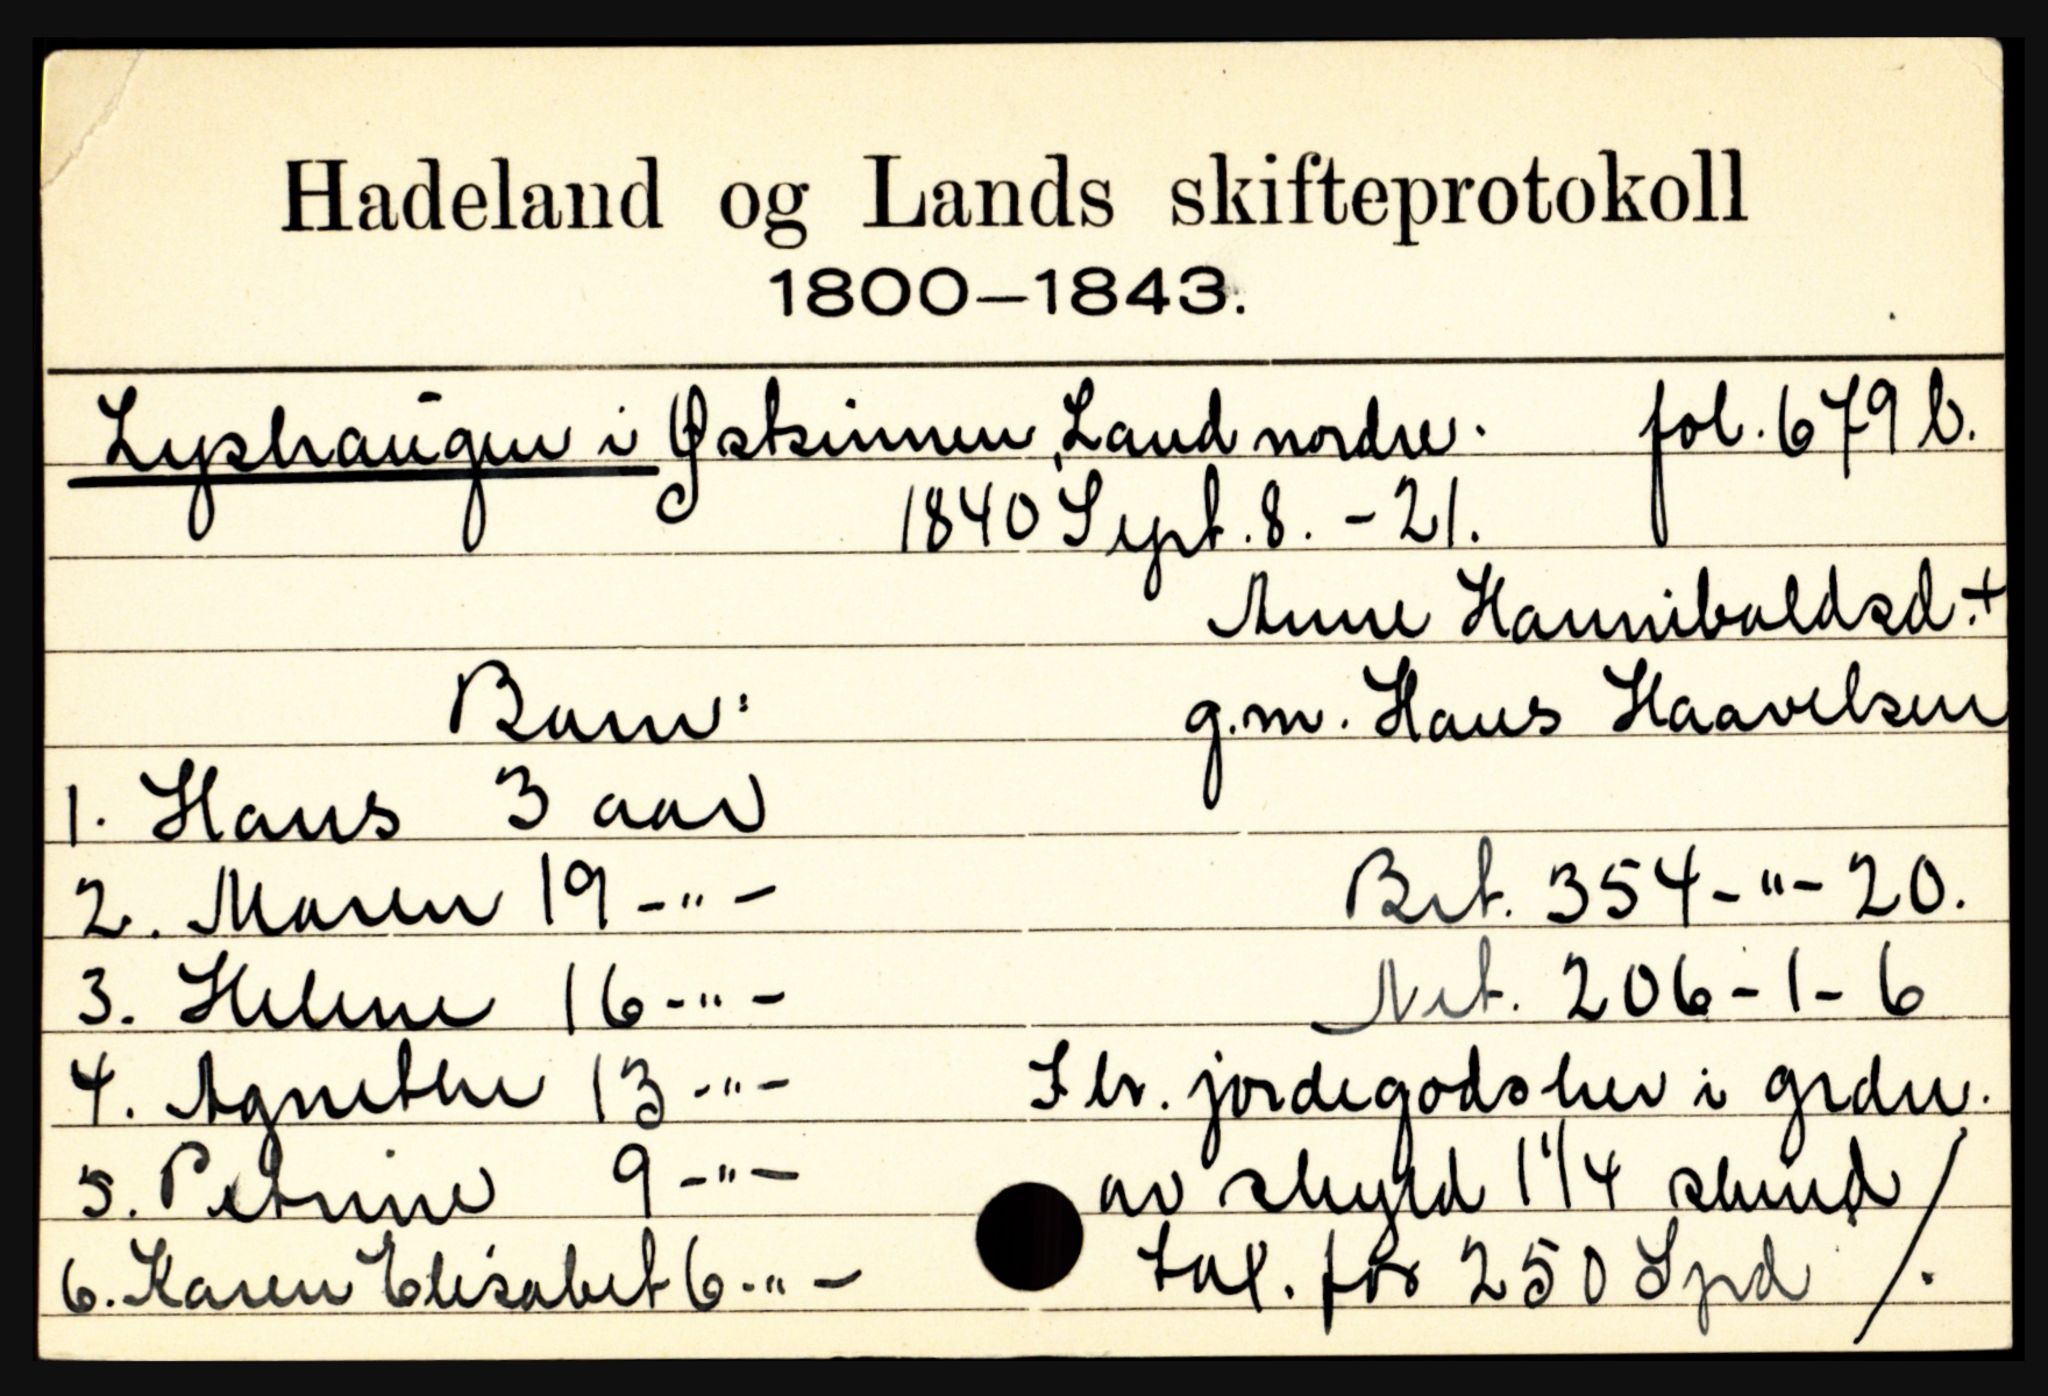 Hadeland og Lands skifteprotokoll
1800–1843.
Lyshaugen i Østsinnen, Land nordre. fol. 679 b.
1840 Sept. 8. - 21.
Anne Hannibaldsd. +
Barn: g.m. Hans Haavelsen
1. Hans 3 aar
2. Maren 19 -"- Brt. 354 - " - 20.
3. Helene 16 -"- Net. 206 - 1 - 6
4. Agnethe 13 -"- I br. jordegods her i grdn.
5. Petrine 9 -"- av skyld 1 1/4 skind
6. Karen Elisabet 6 -"- tax. for 250 Spd /.